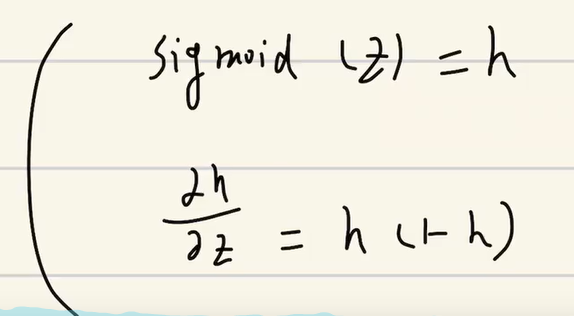 sigmoid (z) = h
∂h/∂z = h (1-h)